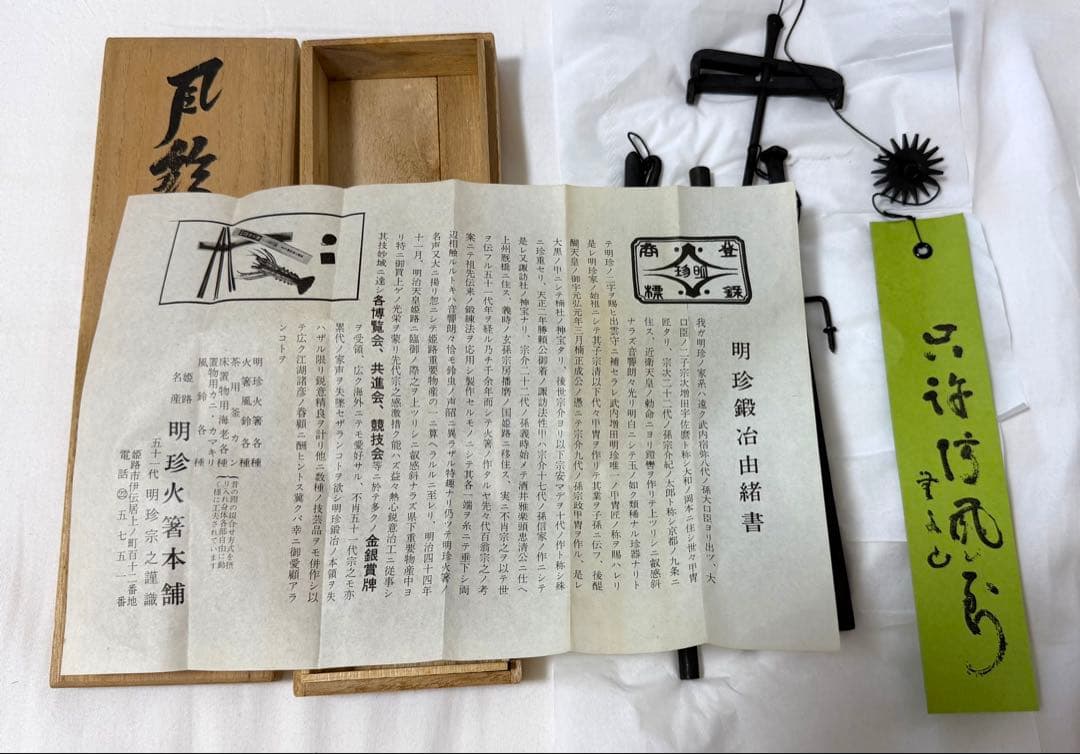 風鈴
登録
商標
明珍
明珍鍛冶由緒書
我ガ明珍ノ家系ハ遠ク武内宿弥八代ノ孫大口臣ヨリ出ヅ、大
口臣ノ二子宗次増田宇佐麿ト称シ大和ノ岡本ニ住シ世々甲冑
匠タリ、宗次二十二代ノ孫宗介紀ノ太郎ト称シ京都ノ九条ニ
住ス、近衛天皇ノ勅命ニヨリ鐙轡ヲ作リテ上ツリシニ叡感斜
ナラズ音響朗々光リ明白ニシテ玉ノ如ク類稀ナル珍器ナリト
テ明珍ノ二字ヲ賜ヒ出雲守ニ補セラレ武内増田明珍唯一ノ甲冑匠ノ称ヲ賜ハレリ
是レ明珍家ノ始祖ニシテ其子宗清以下代々甲冑ヲ作リテ其業ヲ子孫ニ伝フ、後醍
醐天皇ノ御宇元弘元年三月楠正成公ノ憑ニテ宗介九代ノ孫宗政甲冑ヲ作ル、是レ
大黒ノ甲ニシテ楠社ノ神宝タリ、後世宗介ヨリ以下宗安マデヲ十代ノ作ト称シ殊
ニ珍重セリ、天正二年勝頼公御着ノ諏訪法性甲ハ宗介十七代ノ孫信家ノ作ニシテ
是レ又諏訪社ノ神宝ナリ、宗介二十二代ノ孫義時始メテ酒井雅楽頭忠清公ニ仕ヘ
上州厩橋ニ住ス、義時ノ玄孫宗房播磨ノ国姫路ニ移住ス、実ニ不肖宗之ヲ以テ世
ヲ伝フル五十一代年ヲ経ル乃チ千余年而シテ火箸ノ作タルヤ先々代百翁宗之ノ考
案ニテ祖先伝来ノ鍛練法ヲ応用シ製作セルモノニシテ其各一端ヲ糸ニテ垂下シ両
辺相触ルルトキハ音響朗々恰モ鈴虫ノ声韶ニ異ラザル特趣ナリ仍ツテ明珍火箸ノ
名声又大ニ揚リ忽ニシテ姫路重要物産ノ一ニ算ヘラルルニ至レリ、明治四十四年
十一月、明治天皇姫路ニ臨御ノ際之ヲ上ツリシニ叡感斜ナラズ県下重要物産中ヨ
リ特ニ御買上ゲノ光栄ヲ蒙リ先代宗之感激措ク能ハズ益々熱心鋭意治工ニ従事シ
其技妙域ニ達シ各博覧会、共進会、競技会等ニ於テ多クノ金銀賞牌
ヲ受領、広ク海外ニテモ愛好サル、不肖五十一代宗之モ亦
累代ノ家声ヲ失墜セザランコトヲ欲シ明珍鍛冶ノ本領ヲ失
ハザル限リ鋭意精良ヲ計リ他ニ数種ノ技芸品ヲモ併作シ以
テ広ク江湖諸彦ノ眷顧ニ酬ヒントス冀クバ幸ニ御愛顧アラ
ンコトヲ
明珍火箸各種
火箸風鈴各種
茶用釜カン
床置物用海老各種
置物用カニ、カマキリ
風鈴各種
昔の鎧の組合せ方式を摂
り入れ身体各部自由に動
く様に工夫されています
姫路名産
明珍火箸本舗
五十一代明珍宗之謹識
姫路市伊伝居上ノ町百十二番地
電話㉒五七五一番